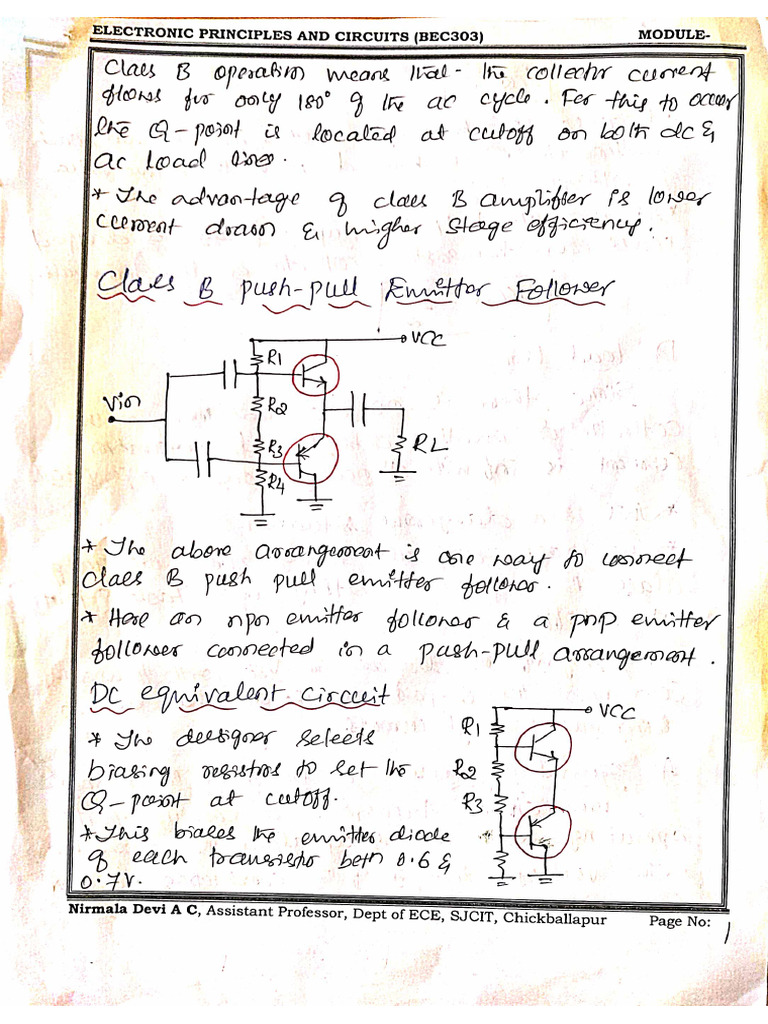 ELECTRONIC PRINCIPLES AND CIRCUITS (BEC303) MODULE-
Class B operation means that - the collector current
flows for only 180° of the ac cycle. For this to occur
the Q-point is located at cutoff on both dc &
ac load lines.
* The advantage of class B amplifier is lower
current drain & higher stage efficiency.
Class B push-pull Emitter Follower
VCC
R1
Vin
R2
R3
RL
R4
* The above arrangement is one way to connect
class B push pull emitter follower.
* Here an npn emitter follower & a pnp emitter
follower connected in a push-pull arrangement.
DC equivalent circuit
VCC
R1
* The designer selects
biasing resistros to set the
R2
Q-point at cutoff.
R3
* This biases the emitter diode
of each transistor beth 0.6 &
0.7V.
Nirmala Devi A C, Assistant Professor, Dept of ECE, SJCIT, Chickballapur Page No: 1